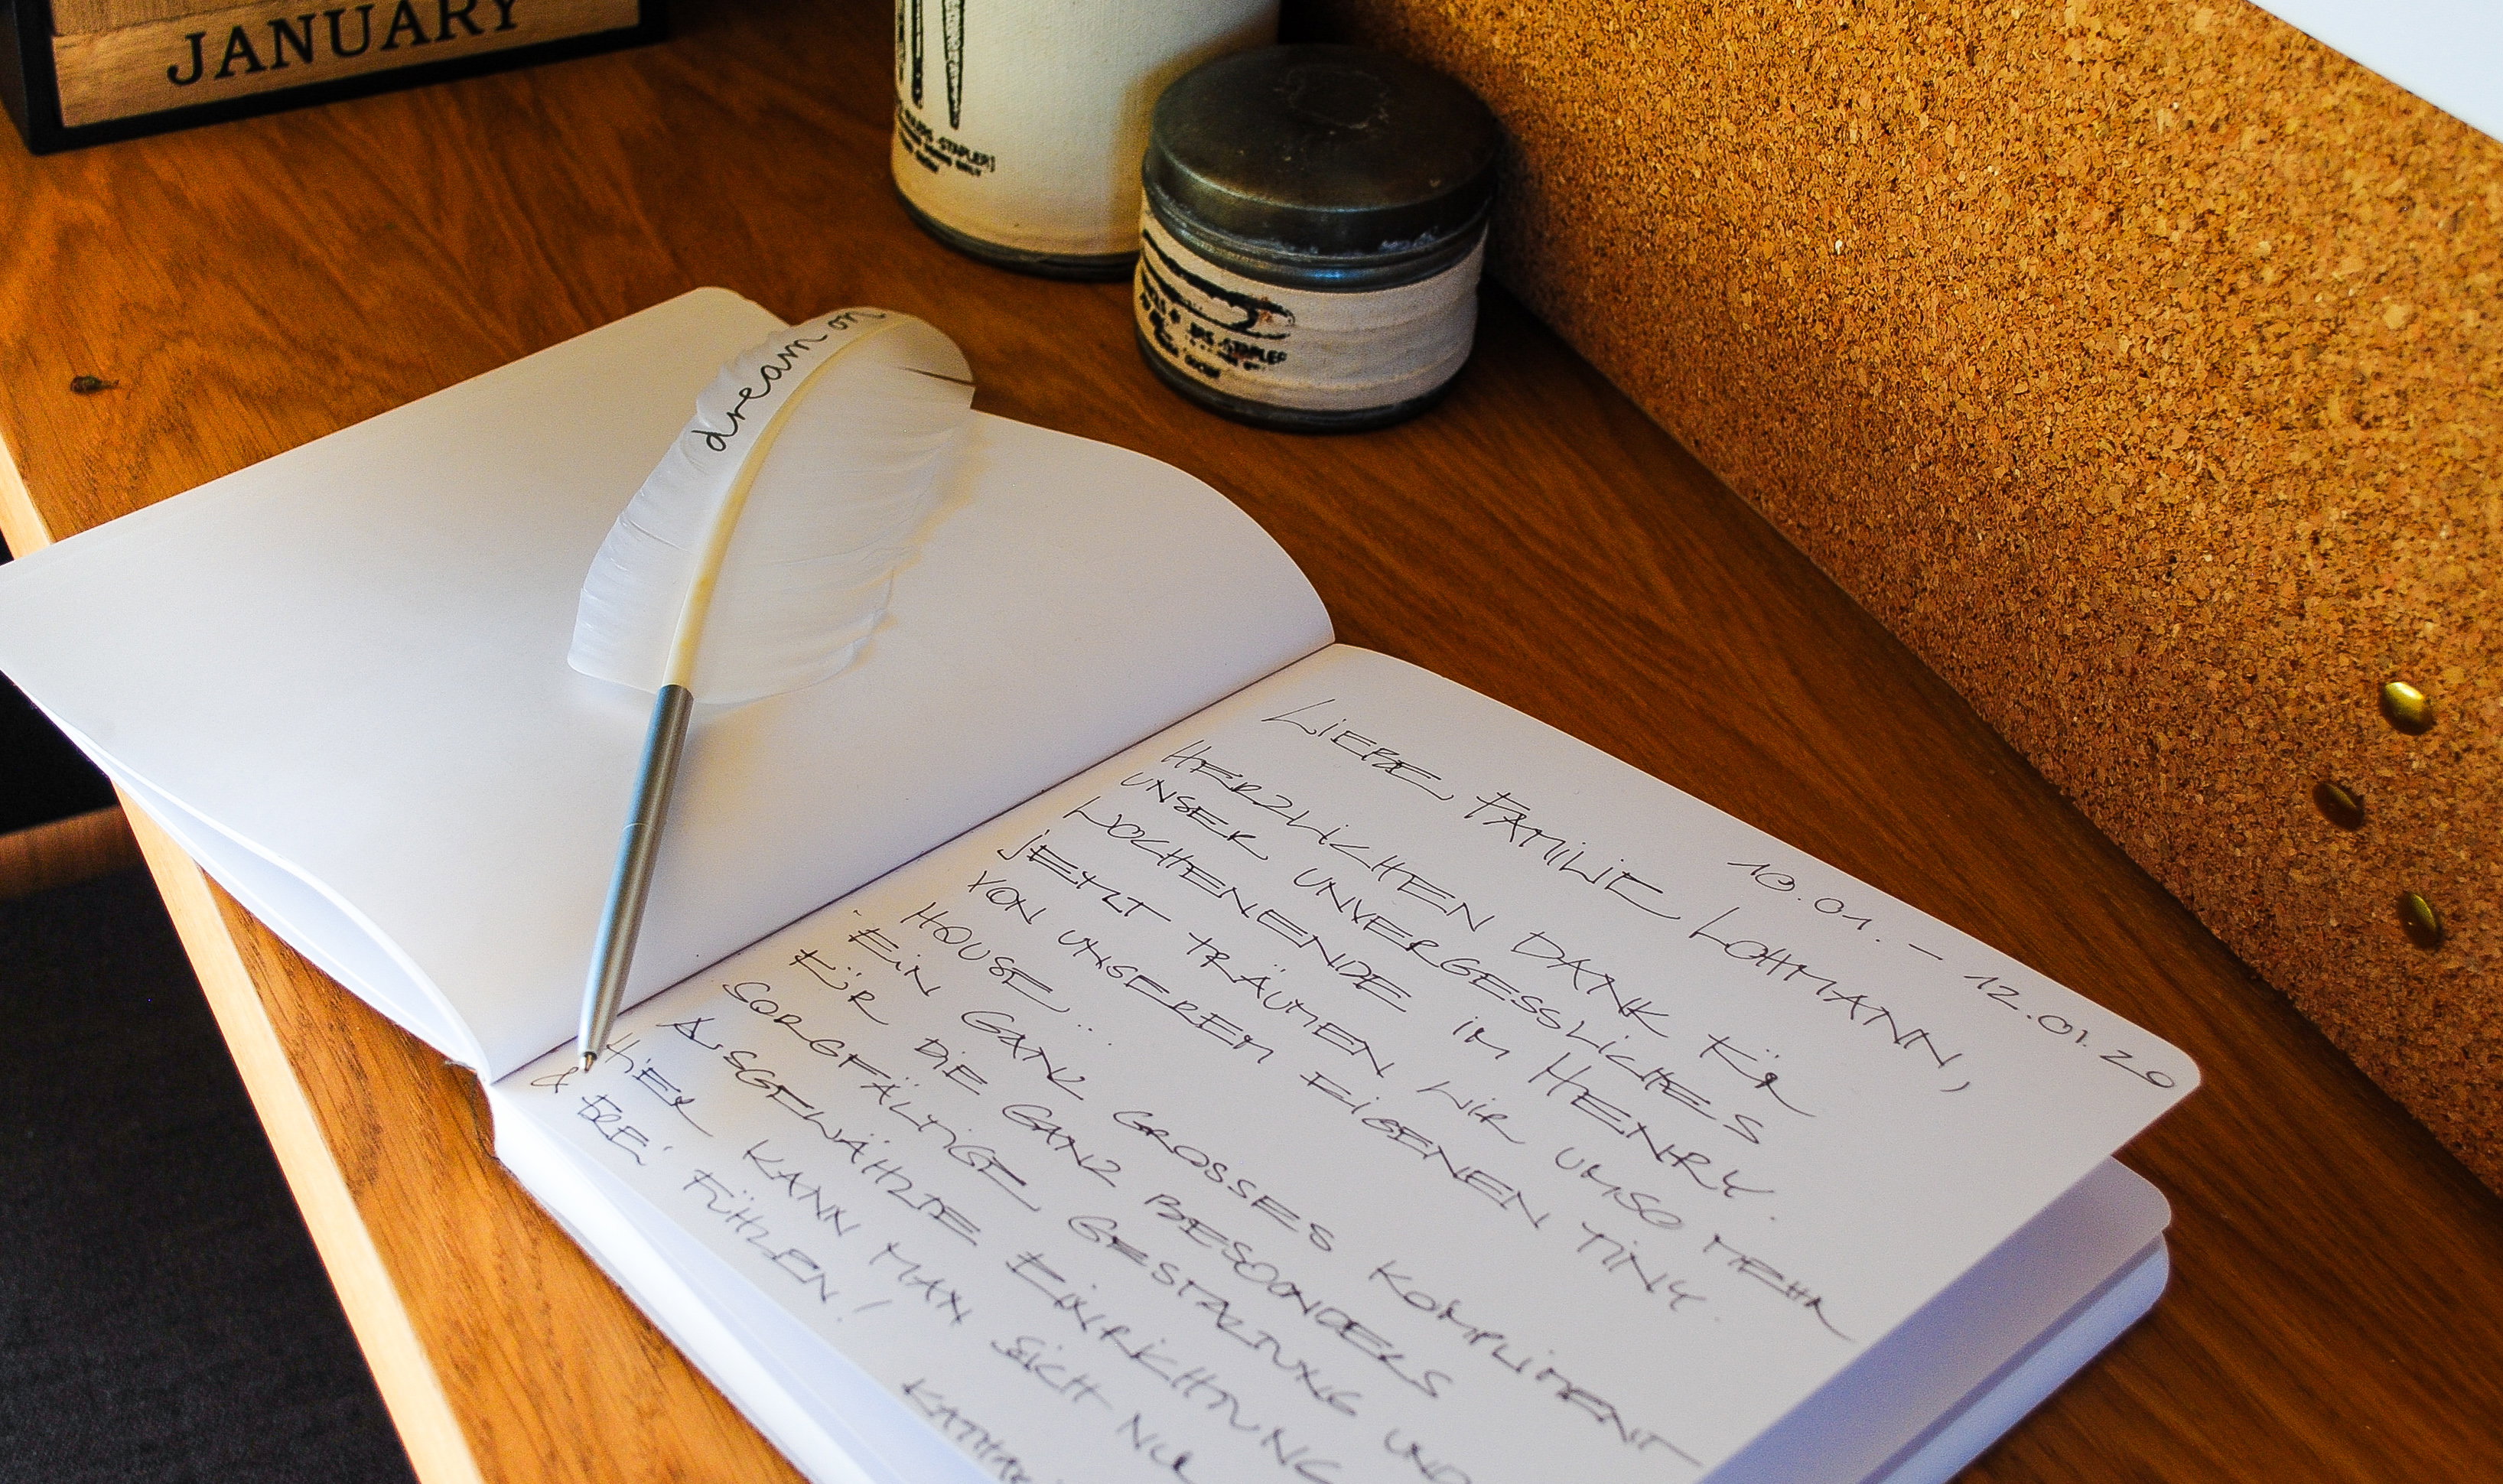 JANUARY
dream on
10.01. – 12.01.20
LIEBE FAMILIE LOHMANN,
HERZLICHEN DANK FÜR
UNSER UNVERGESSLICHES
WOCHENENDE IM HENRY.
JETZT TRÄUMEN WIR UMSO MEHR
VON UNSEREM EIGENEN TINY
HOUSE..
EIN GANZ GROSSES KOMPLIMENT
FÜR DIE GANZ BESONDERS
SORGFÄLTIGE GESTALTUNG UND
AUSGEWÄHLTE EINRICHTUNG
HIER KANN MAN SICH NUR
& FREI FÜHLEN!